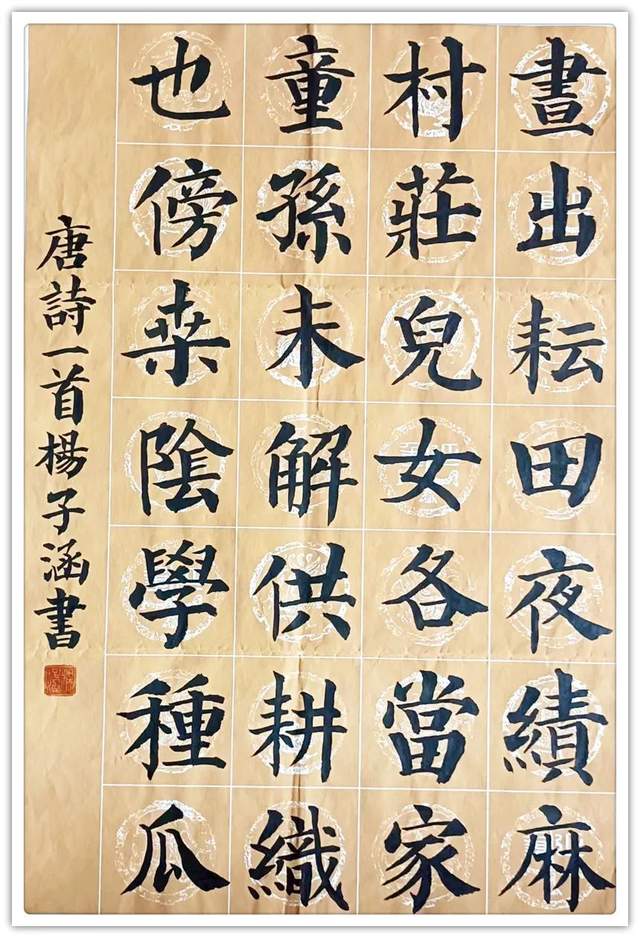 晝出耘田夜績麻
村莊兒女各當家
童孫未解供耕織
也傍桒陰學種瓜
唐詩一首楊子涵書